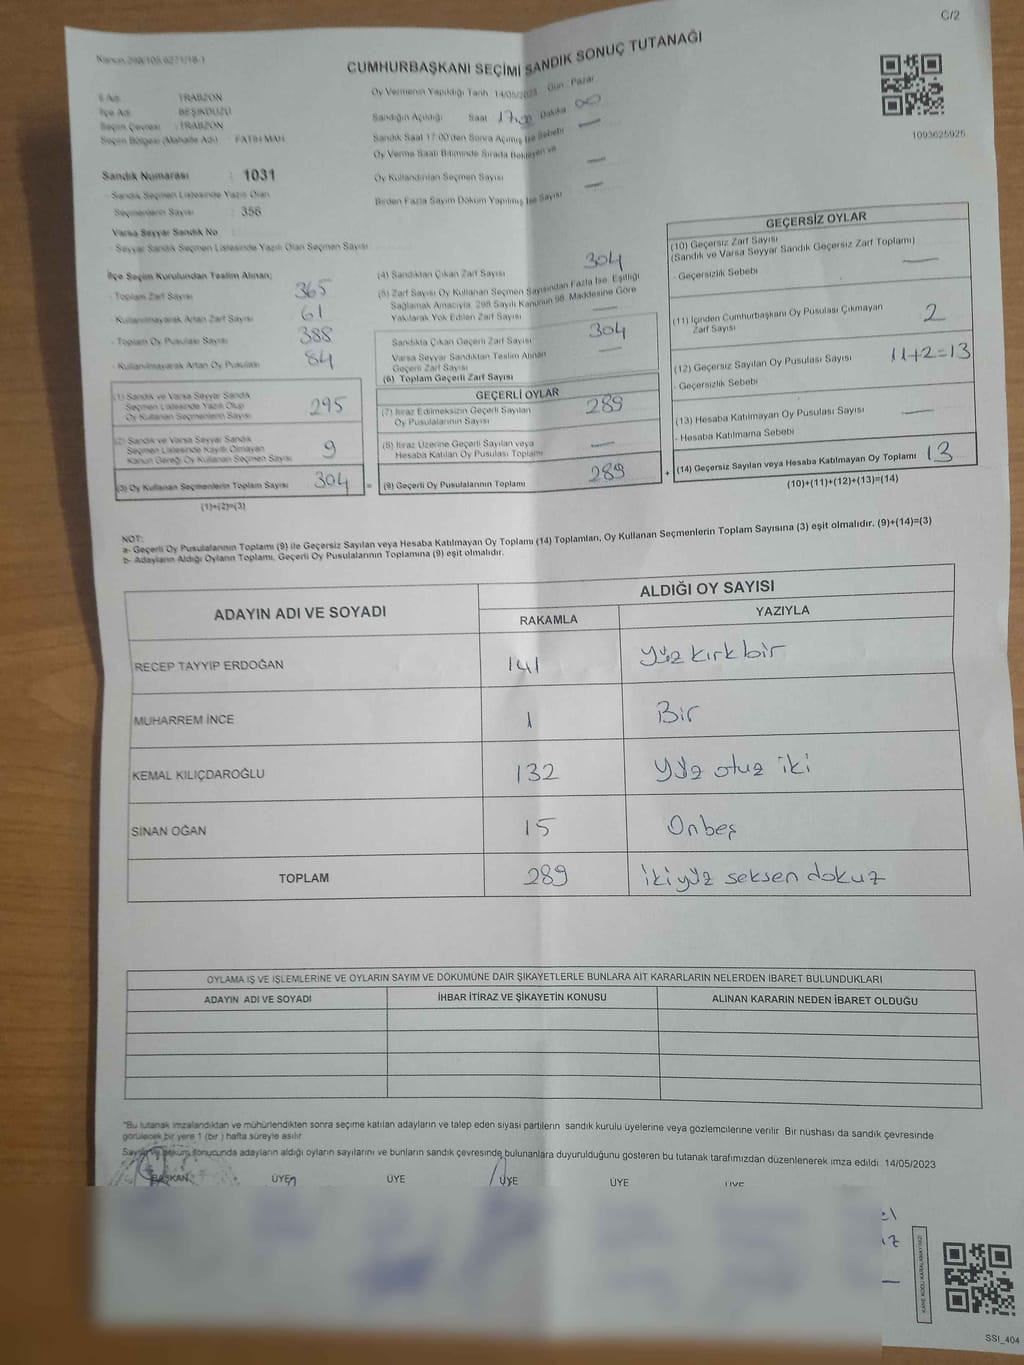 C/2
Kanun 298/105,6271/18-1
CUMHURBAŞKANI SEÇİMİ SANDIK SONUÇ TUTANAĞI
1093625925
İl Adı : TRABZON
İlçe Adı : BEŞİKDÜZÜ
Seçim Çevresi : TRABZON
Seçim Bölgesi (Mahalle Adı) : FATİH MAH.
Sandık Numarası : 1031
- Sandık Seçmen Listesinde Yazılı Olan
Seçmenlerin Sayısı : 356
Varsa Seyyar Sandık No
- Seyyar Sandık Seçmen Listesinde Yazılı Olan Seçmen Sayısı
Oy Vermenin Yapıldığı Tarih : 14/05/2023 Gün : Pazar
Sandığın Açıldığı Saat 17:00 Dakika 00
Sandık Saat 17:00'den Sonra Açılmış İse Sebebi —
Oy Verme Saati Bitiminde Sırada Bekleyen ve
Oy Kullandırılan Seçmen Sayısı —
Birden Fazla Sayım Döküm Yapılmış İse Sayısı —
İlçe Seçim Kurulundan Teslim Alınan;
- Toplam Zarf Sayısı 365
- Kullanılmayarak Artan Zarf Sayısı 61
- Toplam Oy Pusulası Sayısı 388
- Kullanılmayarak Artan Oy Pusulası 84
(1) Sandık ve Varsa Seyyar Sandık
Seçmen Listesinde Yazılı Olup
Oy Kullanan Seçmenlerin Sayısı 295
(2) Sandık ve Varsa Seyyar Sandık
Seçmen Listesinde Kayıtlı Olmayan
Kanun Gereği Oy Kullanan Seçmen Sayısı 9
(3) Oy Kullanan Seçmenlerin Toplam Sayısı 304 =
(1)+(2)=(3)
(4) Sandıktan Çıkan Zarf Sayısı 304
(5) Zarf Sayısı Oy Kullanan Seçmen Sayısından Fazla İse, Eşitliği
Sağlamak Amacıyla, 298 Sayılı Kanunun 98. Maddesine Göre
Yakılarak Yok Edilen Zarf Sayısı —
Sandıkta Çıkan Geçerli Zarf Sayısı 304
Varsa Seyyar Sandıktan Teslim Alınan
Geçerli Zarf Sayısı —
(6) Toplam Geçerli Zarf Sayısı
GEÇERLİ OYLAR
(7) İtiraz Edilmeksizin Geçerli Sayılan
Oy Pusulalarının Sayısı 289
(8) İtiraz Üzerine Geçerli Sayılan veya
Hesaba Katılan Oy Pusulası Toplamı —
(9) Geçerli Oy Pusulalarının Toplamı 289 +
GEÇERSİZ OYLAR
(10) Geçersiz Zarf Sayısı
(Sandık ve Varsa Seyyar Sandık Geçersiz Zarf Toplamı) —
- Geçersizlik Sebebi
(11) İçinden Cumhurbaşkanı Oy Pusulası Çıkmayan
Zarf Sayısı 2
(12) Geçersiz Sayılan Oy Pusulası Sayısı 11+2=13
- Geçersizlik Sebebi
(13) Hesaba Katılmayan Oy Pusulası Sayısı —
- Hesaba Katılmama Sebebi
(14) Geçersiz Sayılan veya Hesaba Katılmayan Oy Toplamı 13
(10)+(11)+(12)+(13)=(14)
NOT:
a- Geçerli Oy Pusulalarının Toplamı (9) ile Geçersiz Sayılan veya Hesaba Katılmayan Oy Toplamı (14) Toplamları, Oy Kullanan Seçmenlerin Toplam Sayısına (3) eşit olmalıdır. (9)+(14)=(3)
b- Adayların Aldığı Oyların Toplamı, Geçerli Oy Pusulalarının Toplamına (9) eşit olmalıdır.
ADAYIN ADI VE SOYADI ALDIĞI OY SAYISI
RAKAMLA YAZIYLA
RECEP TAYYİP ERDOĞAN 141 Yüz kırk bir
MUHARREM İNCE 1 Bir
KEMAL KILIÇDAROĞLU 132 Yüz otuz iki
SİNAN OĞAN 15 Onbeş
TOPLAM 289 İki yüz seksen dokuz
OYLAMA İŞ VE İŞLEMLERİNE VE OYLARIN SAYIM VE DÖKÜMÜNE DAİR ŞİKAYETLERLE BUNLARA AİT KARARLARIN NELERDEN İBARET BULUNDUKLARI
ADAYIN ADI VE SOYADI İHBAR İTİRAZ VE ŞİKAYETİN KONUSU ALINAN KARARIN NEDEN İBARET OLDUĞU
"Bu tutanak imzalandıktan ve mühürlendikten sonra seçime katılan adayların ve talep eden siyasi partilerin sandık kurulu üyelerine veya gözlemcilerine verilir. Bir nüshası da sandık çevresinde
görülecek bir yere 1 (bir ) hafta süreyle asılır.
Sayım ve döküm sonucunda adayların aldığı oyların sayılarını ve bunların sandık çevresinde bulunanlara duyurulduğunu gösteren bu tutanak tarafımızdan düzenlenerek imza edildi. 14/05/2023
BAŞKAN ÜYE ÜYE ÜYE ÜYE ÜYE
SSI_404